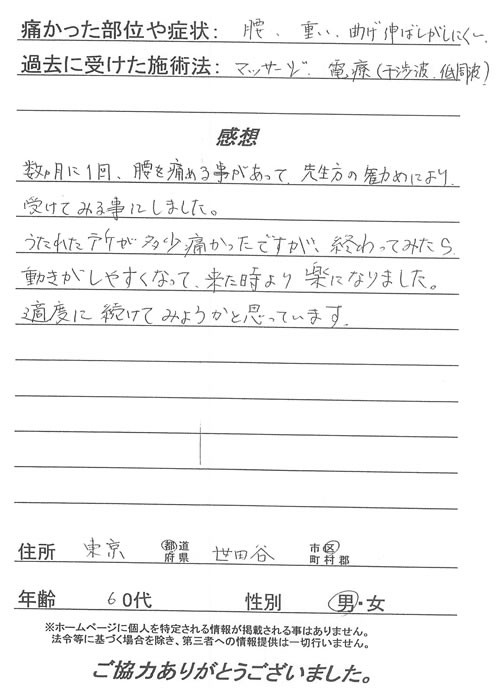 痛かった部位や症状： 腰、重い、曲げ伸ばしがしにくい。
過去に受けた施術法： マッサージ、電療（干渉波、低周波）
感想
数ヵ月に1回、腰を痛める事があって、先生方の勧めにより、
受けてみる事にしました。
うたれたテケが多少痛かったですが、終わってみたら
動きがしやすくなって、来た時より楽になりました。
適度に続けてみようかと思っています。
住所 東京 都道府県 世田谷 市区町村郡
年齢 60代 性別 男・女
※ホームページに個人を特定される情報が掲載される事はありません。
法令等に基づく場合を除き、第三者への情報提供は一切行いません。
ご協力ありがとうございました。